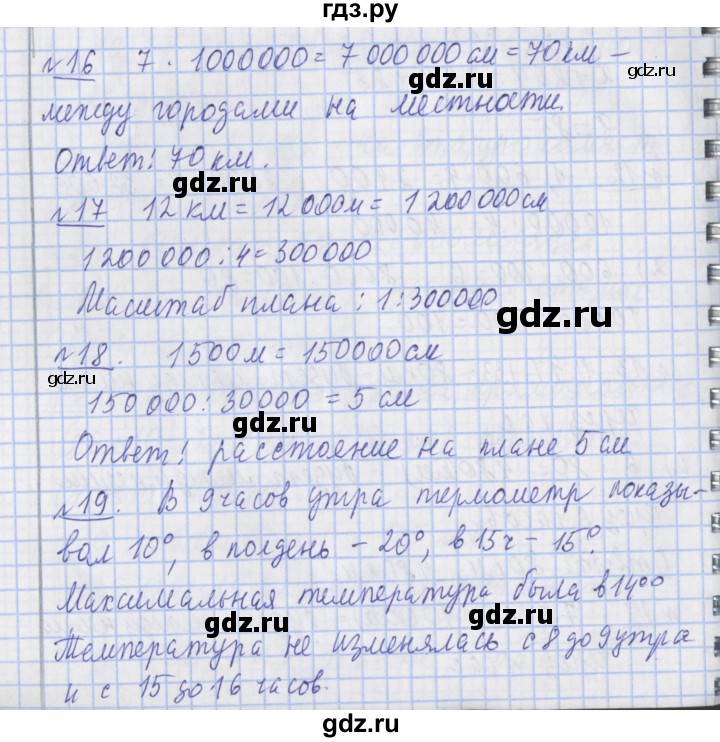 гдз.ру
№16 7 · 1000000 = 7 000 000 см = 70 км –
gdz.ru
gdz.ru
между городами на местности.
Ответ: 70 км.
gdz.ru
№17 12 км = 12 00см = 1 200 000см
gdz.ru
1200000 : 4 = 300000
Масштаб плана : 1:300000
gdz.ru
№18. 1500м = 150000см
gdz.ru
150 000 : 30000 = 5 см
gdz.ru
Ответ: расстоение на плане 5 см
№19. В 9 часов утра термометр показы-
gdz.ru
вал 10°, в полдень – 20°, в 15ч – 15°.
gdz.ru
Максимальная температура была в 14°°
gdz.ru
Температура не изменялась с 8 до 9 утра
gdz.ru
и с 15 до 16 часов.
gdz.ru
gdz.ru